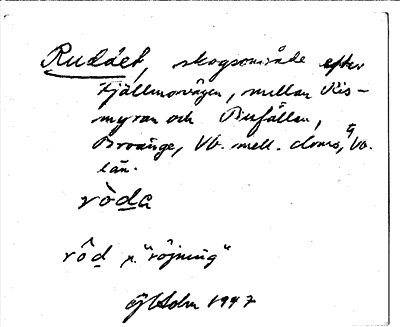 Rudået, skogsområde efter
Fjällmovägen, mellan Ris-
myran och Bufällan,
Broänge, Vb. mell. doms, Vb.
län.
röda
rôd n. "röjning"
1947